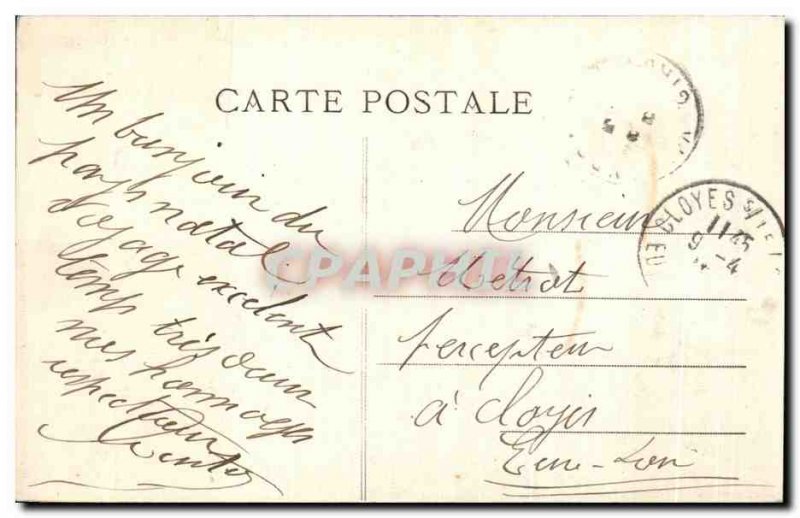 CARTE POSTALE
Un bonjour du
pays natal
voyage excelent
temps très doux
mes hommages
respectueux
Monsieur
percepteur
à Cloyes
Eure-Loir
CLOYES S/LE L
11 45
9 - 4
CPAPHIL